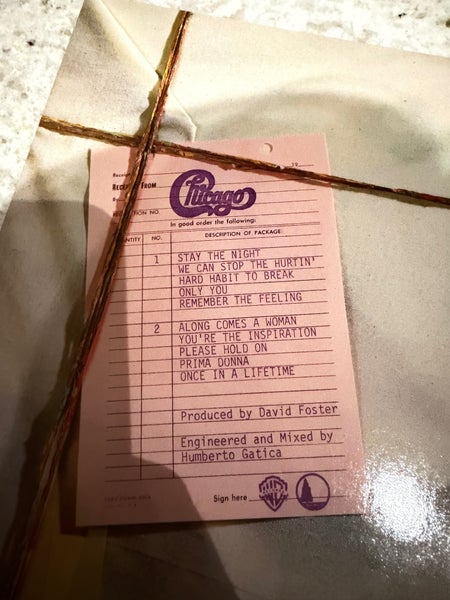 19
FROM
Chicago
TION NO.
In good order the following:
NTITY NO. DESCRIPTION OF PACKAGE
1 STAY THE NIGHT
WE CAN STOP THE HURTIN'
HARD HABIT TO BREAK
ONLY YOU
REMEMBER THE FEELING
2 ALONG COMES A WOMAN
YOU'RE THE INSPIRATION
PLEASE HOLD ON
PRIMA DONNA
ONCE IN A LIFETIME
Produced by David Foster
Engineered and Mixed by
Humberto Gatica
Sign here